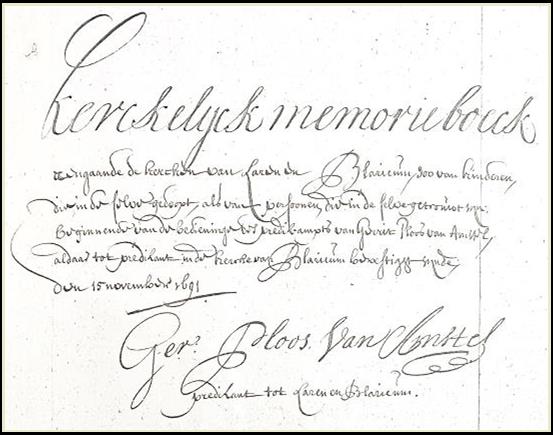 Kerckelyck memorieboeck
aengaande de kercken van Laren en Blaricum, soo van kinderen,
die in de selve gedoopt, als van persoonen, die in de selve getrouwt syn.
Beginnende van de bedieninge des predikampts van Gerrit Ploos van Amstel,
aldaar tot predikant in de kercke van Blaricum bevestigt synde,
den 15 november 1691
Gerr. Ploos Van Amstel
predikant tot Laren en Blaricum.